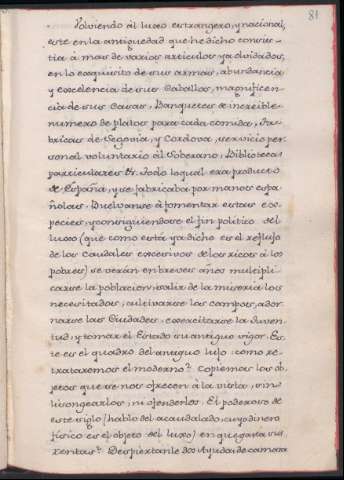 81
Volviendo al luxo extrangero, y nacional,
este en la antiguedad que he dicho consis-
tia a mas de varios articulos ya olvidados,
en lo exquisito de sus armas, abundancia
y excelencia de sus Caballos, magnificen-
cia de sus Casas, Banquetes de increible
numero de platos para cada comida, Fa-
bricas de Segovia, y Cordova, servicio per-
sonal voluntario al Soberano, Bibliotecas
particulares &. Todo lo qual era producto
de España, y se fabricaba por manos espa-
ñolas. Buelvanse á fomentar estas es-
pecies, y consiguiendose el fin politico del
luxo (que como está ya dicho es el reflujo
de los Caudales excesivos de los ricos á los
pobres) se verán en breves años multipli-
carse la poblacion, salir de la miseria los
necesitados, cultivarse los campos, ador-
narse las Ciudades, exercitarse la Juven-
tud, y tomar el Estado su antiguo vigor. Es-
te es el quadro del antiguo lujo: como re-
trataremos el moderno? Copiemos los ob-
jetos que se nos ofrecen á la vista, sin
lisongearlos, ni ofenderlos. El poderoso de
este siglo (hablo del acaudalado, cuyo dinero
fisico es el objeto del luxo) en que gasta sus
rentas? Despiertanle dos Ayudas de camara